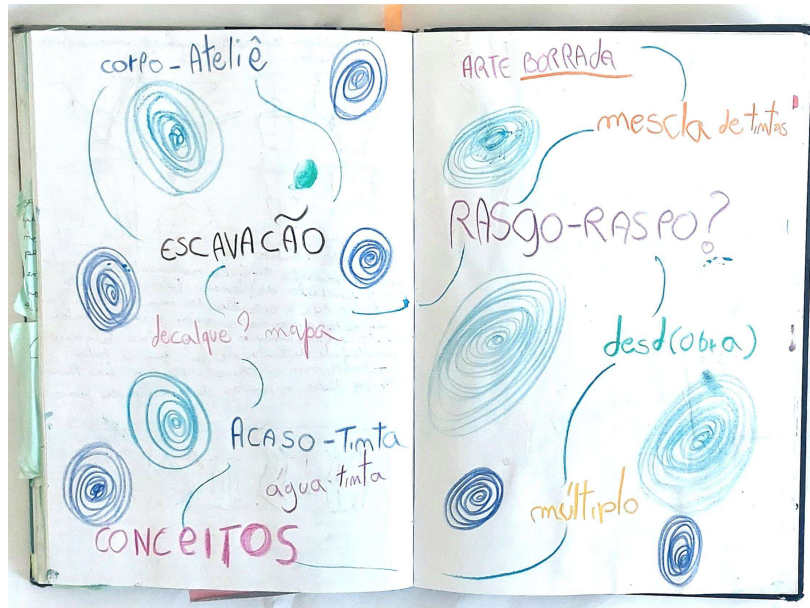 corpo-Ateliê
ESCAVACÃO
decalque? mapa
ACASO-Tinta
água-tinta
CONCEITOS
ARTE BORRADA
mescla de tintas
RASgO-RASPO?
desd(obra)
múltiplo